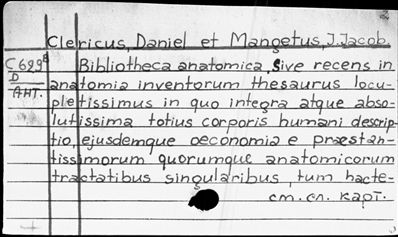 Clericus, Daniel et Mangetus, J. Jacob.
C 699ᴮ Bibliotheca anatomica, sive recens in
D anatomia inventorum thesaurus locu-
АНТ. pletissimus in quo integra atque abso-
lutissima totius corporis humani descrip-
tio, ejusdemque oeconomia e praestan-
tissimorum quorumque anatomicorum
tractatibus singularibus, tum hacte-
см. сл. карт.